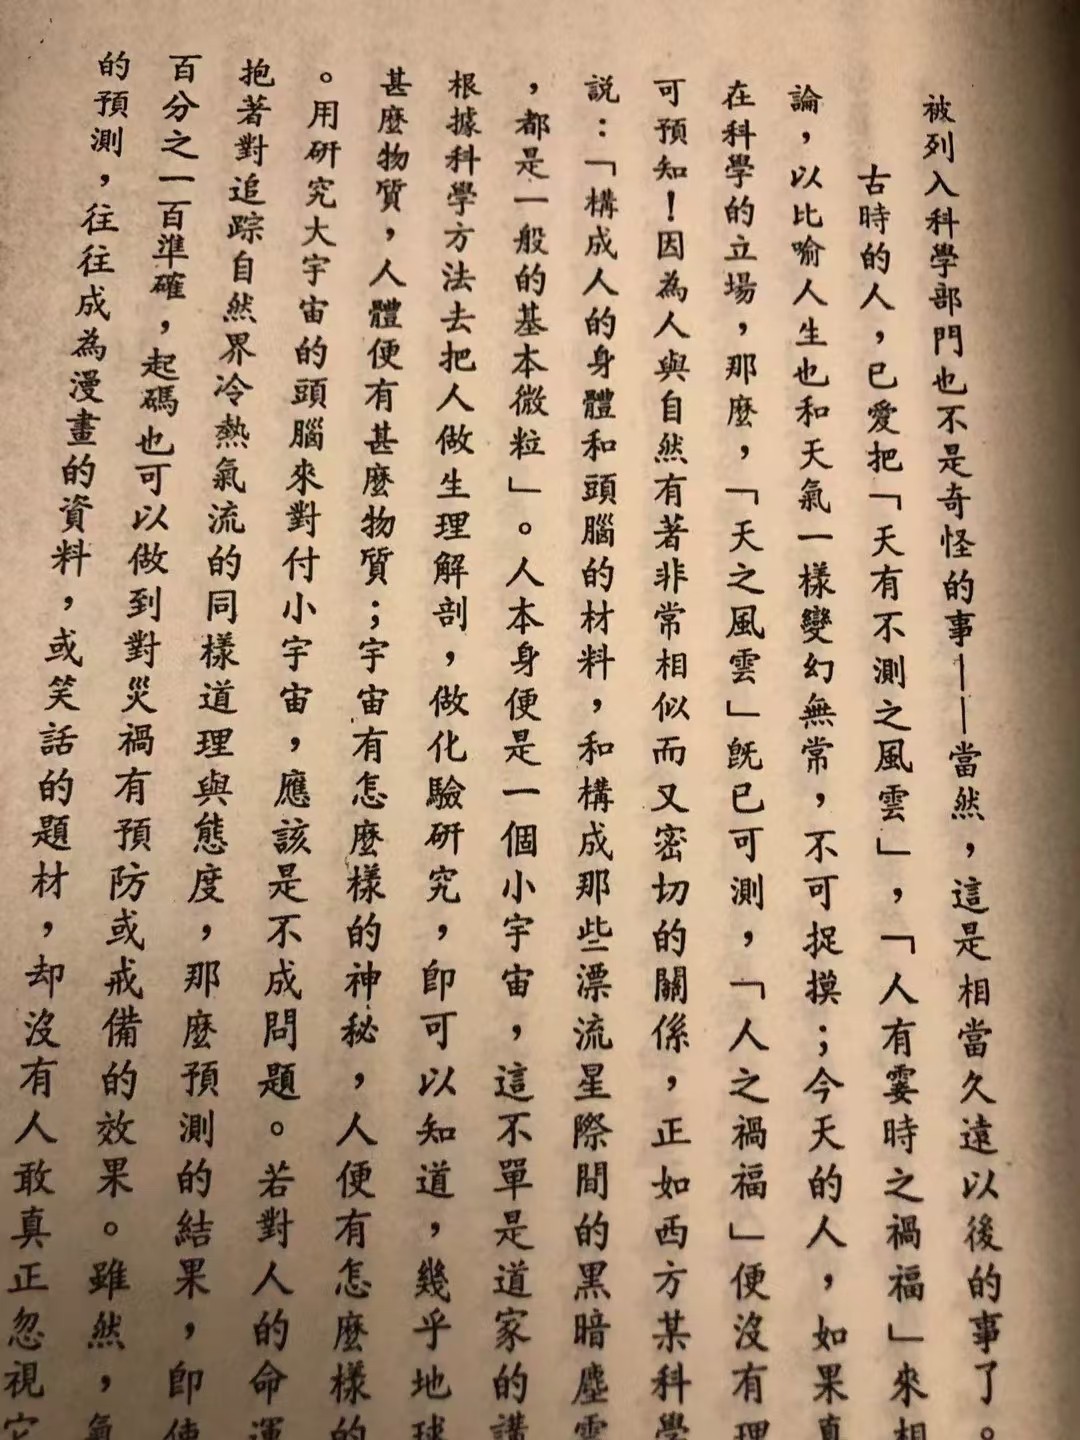 被列入科學部門也不是奇怪的事——當然，這是相當久遠以後的事了。
古時的人，已愛把「天有不測之風雲」，「人有霎時之禍福」來相
論，以比喻人生也和天氣一樣變幻無常，不可捉摸；今天的人，如果真
在科學的立場，那麼，「天之風雲」旣已可測，「人之禍福」便沒有理
可預知！因為人與自然有著非常相似而又密切的關係，正如西方某科學
説：「構成人的身體和頭腦的材料，和構成那些漂流星際間的黑暗塵雲
，都是一般的基本微粒」。人本身便是一個小宇宙，這不單是道家的講
根據科學方法去把人做生理解剖，做化驗研究，卽可以知道，幾乎地球
甚麼物質，人體便有甚麼物質；宇宙有怎麼樣的神秘，人便有怎麼樣的
。用研究大宇宙的頭腦來對付小宇宙，應該是不成問題。若對人的命運
抱著對追踪自然界冷熱氣流的同樣道理與態度，那麼預測的結果，卽使
百分之一百準確，起碼也可以做到對災禍有預防或戒備的效果。雖然，氣
的預測，往往成為漫畫的資料，或笑話的題材，却沒有人敢真正忽視它